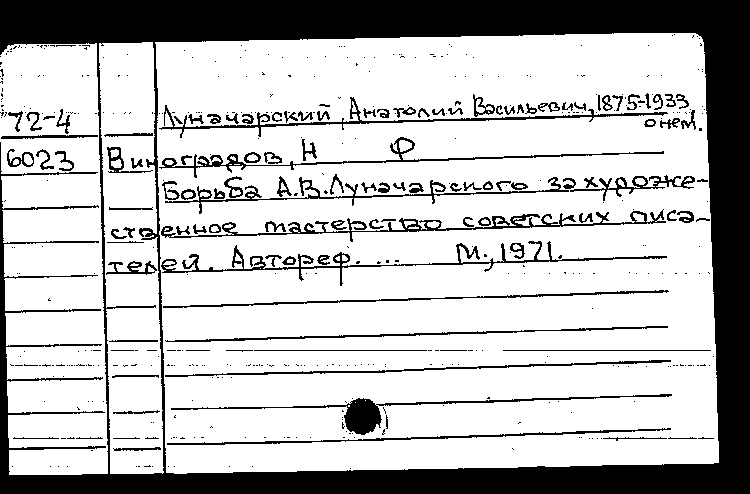 72-4 Луначарский, Анатолий Васильевич, 1875-1933
о нем.
6023 Виноградов, Н Ф
Борьба А.В.Луначарского за художе-
ственное мастерство советских писа-
телей. Автореф. ... М., 1971.